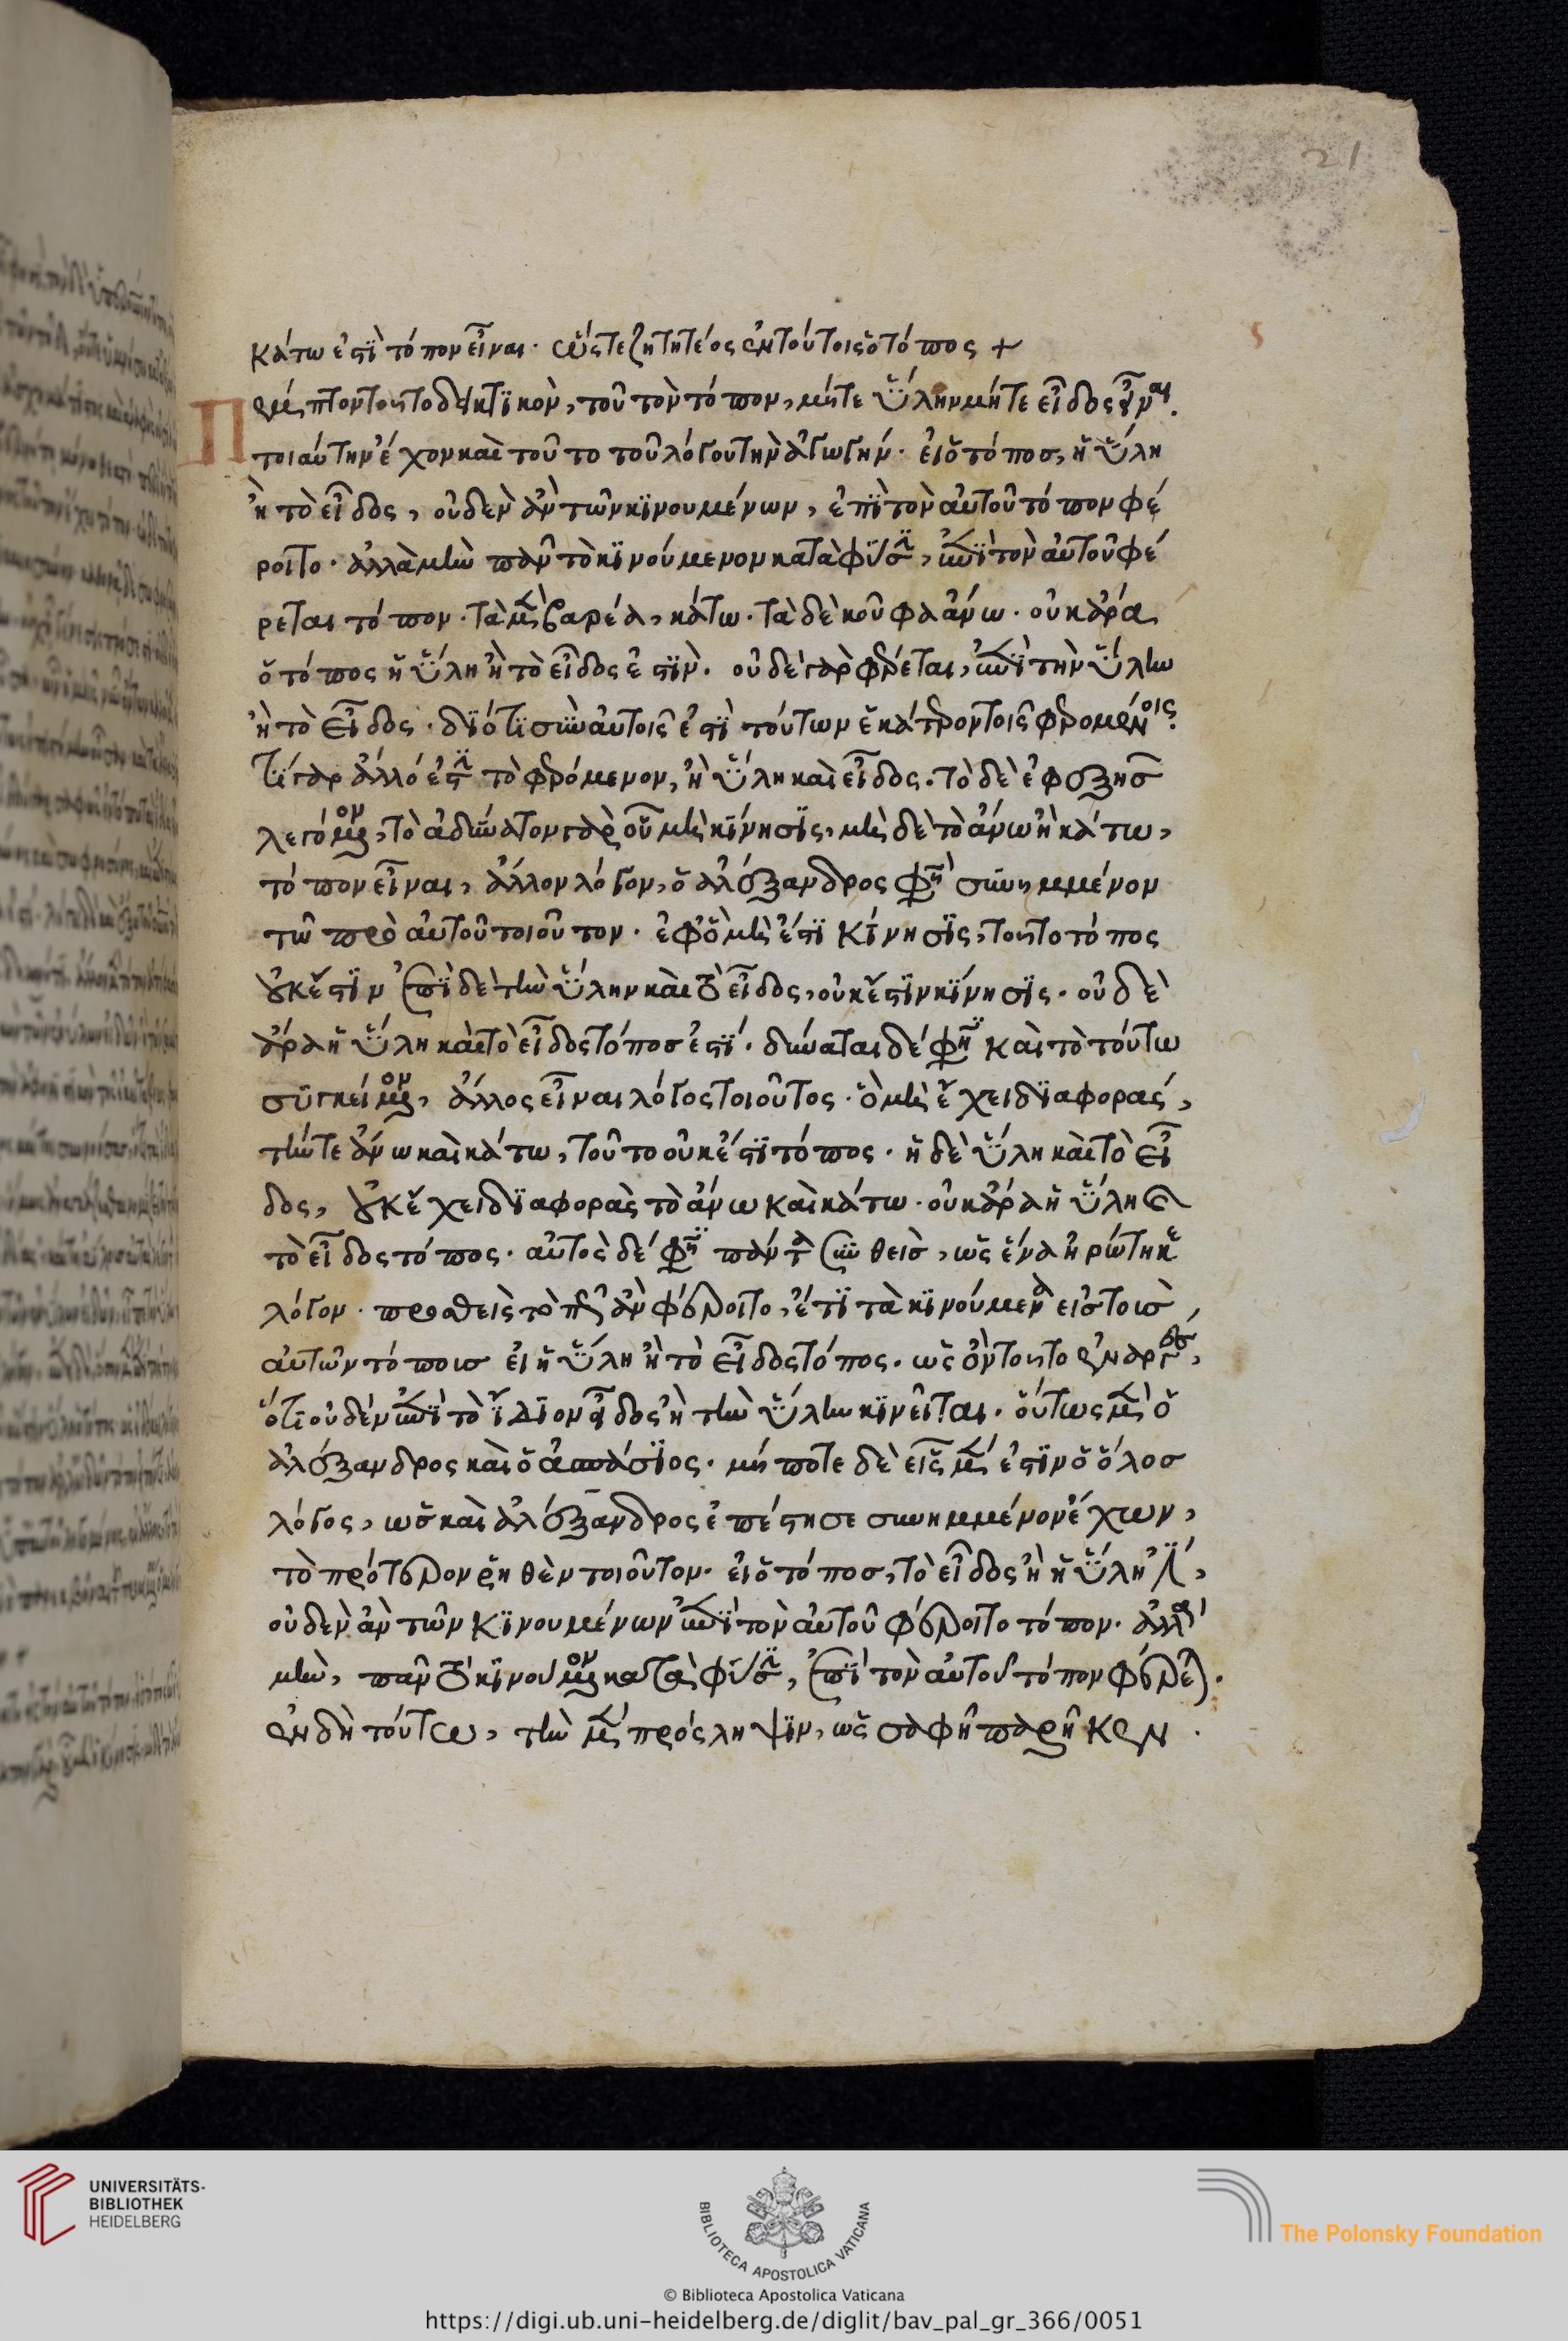 21
κάτω ἐστὶ τόπον εἶναι· ὥστε ζητητέος ἐν τούτοις ὁ τόπος +
Πέμπτον τοῦτο δεικτικὸν, τοῦ τὸν τόπον, μήτε ὕλην μήτε εἶδος εἶναι.
τοιαύτην ἔχον καὶ τοῦτο τοῦ λόγου τὴν ἀγωγήν· εἰ ὁ τόπος, ἡ ὕλη
ἢ τὸ εἶδος, οὐδὲν ἂν τῶν κινουμένων, ἐπὶ τὸν αὐτοῦ τόπον φέ
ροιτο· ἀλλὰ μὴν πᾶν τὸ κινούμενον κατὰ φύσιν, ἐπὶ τὸν αὐτοῦ φέ
ρεται τόπον· τὰ μὲν βαρέα, κάτω· τὰ δὲ κοῦφα ἄνω· οὐκ ἄρα
ὁ τόπος ἡ ὕλη ἢ τὸ εἶδος ἐστὶν· οὐδὲ γὰρ φέρεται, ἐπὶ τὴν ὕλην
ἢ τὸ εἶδος· διότι σὺν αὐτοῖς ἐστὶ τούτων ἑκάτερον τοῖς φερομένοις·
τί γὰρ ἄλλό ἐστι τὸ φερόμενον, ἢ ὕλη καὶ εἶδος· τὸ δὲ ἐφεξῆς
λεγόμενον, τὸ ἀδύνατον γὰρ οὗ μὴ κίνησις, μὴ δὲ τὸ ἄνω ἢ κάτω,
τόπον εἶναι, ἄλλον λόγον, ὁ ἀλέξανδρος φησὶ συνημμένον
τῶ πρὸ αὐτοῦ τοιοῦτον· ἐφ ὃ μὴ ἔστι κίνησις, τοῦτο τόπος
οὐκ ἔστιν ἐπὶ δὲ τὴν ὕλην καὶ τὸ εἶδος, οὐκ ἔστιν κίνησις· οὐδὲ
ἄρα ἡ ὕλη καὶ τὸ εἶδος τόπος ἐστί· δύναται δέ φησι καὶ τὸ τούτω
συγκείμενον, ἄλλος εἶναι λόγος τοιοῦτος· ὃ μὴ ἔχει διαφοράς,
τήν τε ἄνω καὶ κάτω, τοῦτο οὐκ ἔστι τόπος· ἡ δὲ ὕλη καὶ τὸ εἶ
δος, οὐκ ἔχει διαφορὰς τὸ ἄνω καὶ κάτω· οὐκ ἄρα ἡ ὕλη καὶ
τὸ εἶδος τόπος· αὐτὸς δέ φησι πάντα συνθεὶς, ὡς ἕνα ἠρώτηκε
λόγον· προθεὶς τὸ πῶς ἂν φέροιτο, ἔτι τὰ κινούμενα εἰς τοῖς
αὐτῶν τόποις εἰ ἡ ὕλη ἢ τὸ εἶδος τόπος· ὡς ὄντος τοῦ ἐναργοῦς,
ὅτι οὐδὲν ἐπὶ τὸ ἴδιον εἶδος ἢ τὴν ὕλην κινεῖται· οὕτως μὲν ὁ
ἀλέξανδρος καὶ ὁ ἀσπάσιος· μήποτε δὲ εἷς μέν ἐστιν ὁ ὅλος
λόγος, ὡς καὶ ἀλέξανδρος ἐπέστησε συνημμένον ἔχων,
τὸ πρότερον ῥηθὲν τοιοῦτον· εἰ ὁ τόπος, τὸ εἶδος ἢ ἡ ὕλη ἐστί,
οὐδὲν ἂν τῶν κινουμένων ἐπὶ τὸν αὐτοῦ φέροιτο τόπον· ἀλλὰ
μὴν, πᾶν τὸ κινούμενον κατὰ φύσιν, ἐπὶ τὸν αὐτοῦ τόπον φέρεται·
ἐν δὴ τούτω, τὴν μὲν πρόσληψιν, ὡς σαφῆ παρῆκεν ·
UNIVERSITÄTS-
BIBLIOTHEK
HEIDELBERG
BIBLIOTECA APOSTOLICA VATICANA
The Polonsky Foundation
© Biblioteca Apostolica Vaticana
https://digi.ub.uni-heidelberg.de/diglit/bav_pal_gr_366/0051